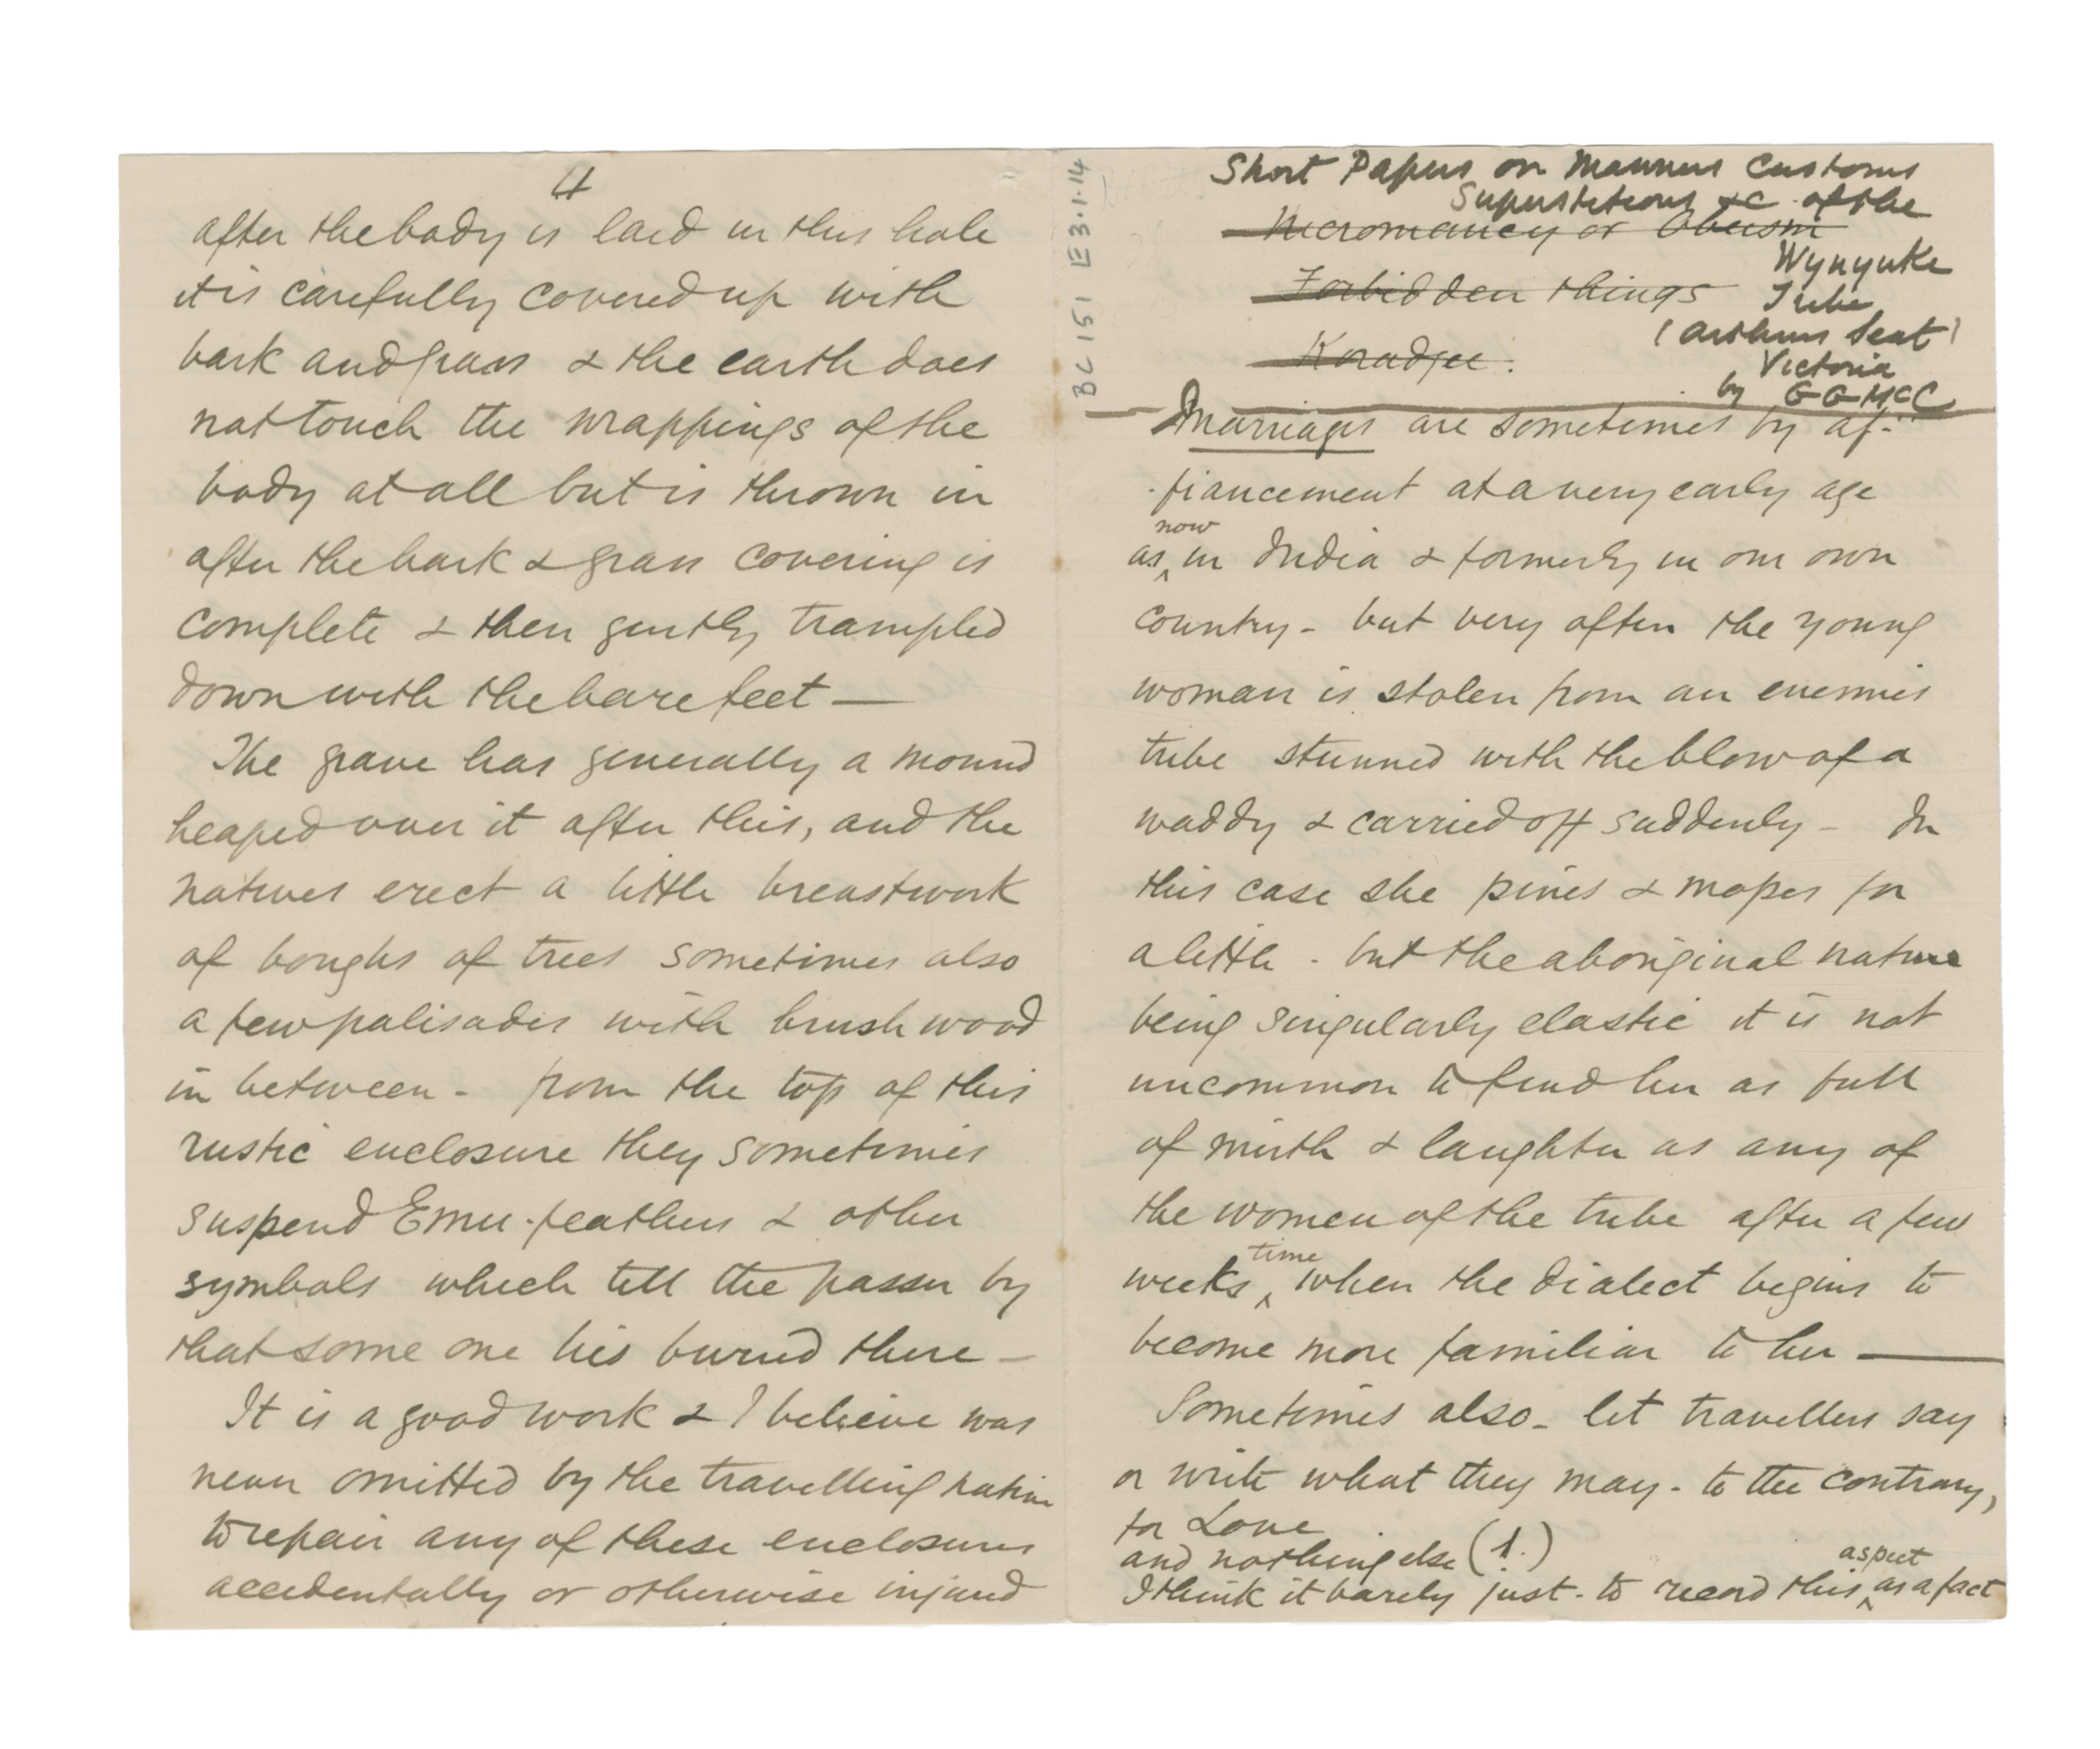 4
after the body is laid in this hole
it is carefully covered up with
bark and grass & the earth does
not touch the wrappings of the
body at all but is thrown in
after the bark & grass covering is
complete & then gently trampled
down with the bare feet —
The grave has generally a mound
heaped over it after this, and the
natives erect a little breastwork
of boughs of trees sometimes also
a few palisades with brushwood
in between - from the top of this
rustic enclosure they sometimes
suspend Emu-feathers & other
symbols which tell the passer by
that some one lies buried there —
It is a good work & I believe was
never omitted by the travelling native
to repair any of these enclosures
accidentally or otherwise injured
BC 151 E3.1.14
Short Papers on Manners Customs
Superstitions &c of the
Necromancy or Obeism
Wynyuke
Forbidden things
Tribe
(Arthurs Seat)
Koradjee.
Victoria
by GGMcC
Marriages are sometimes by af-
fiancement at a very early age
now
as ^ in India & formerly in our own
country - but very often the young
woman is stolen from an enemies
tribe stunned with the blow of a
waddy & carried off suddenly - In
this case she pines & mopes for
a little - but the aboriginal nature
being singularly elastic it is not
uncommon to find her as full
of mirth & laughter as any of
the women of the tribe after a few
time
weeks ^ when the dialect begins to
become more familiar to her —
Sometimes also - let travellers say
or write what they may - to the contrary,
for Love
and nothing else (1.)
aspect
I think it barely just - to record this ^ as a fact